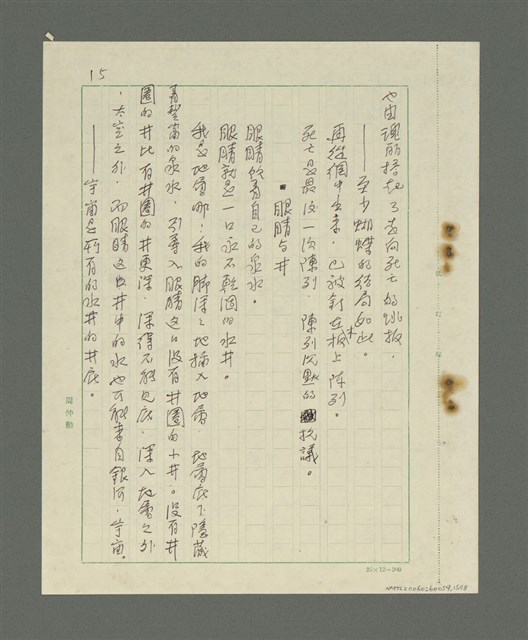 也由瑰麗搭起了走向死亡的跳板，
——至少蝴蝶的結局如此。
再從網中出來，已被釘在木板上陣列。
死亡是最後一次陳列，陳列沉默的抗議。
▪眼睛与井
眼睛飲着自己的泉水。
眼睛就是一口永不乾涸的水井。
我是地層哪！我的腳深深地插入地層，地層底下隱藏
着豐富的泉水，引導入眼睛这口没有井圈的小井。沒有井
圈的井比有井圈的井更深，深得不能見底，深入地層之外
，太空之外，而眼睛这口井中的水也可能來自銀河，宇宙。
——宇宙是所有的水井的井底。
15
周仲勳
25×12=300